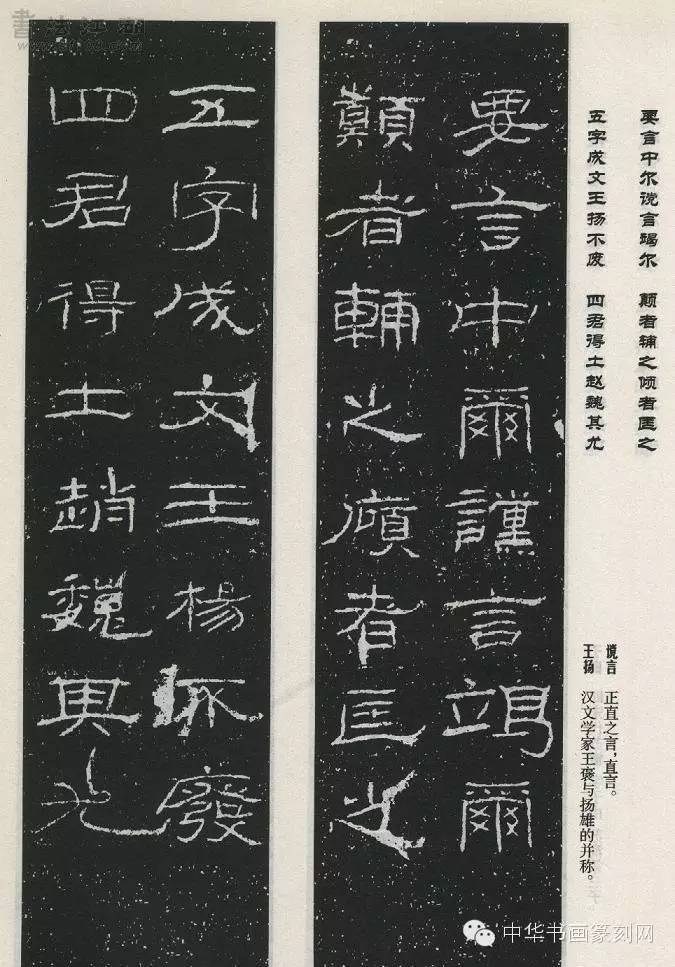 要言中尔谠言竭尔 颠者辅之倾者匡之
五字成文王扬不废 四君得士赵魏其尤
谠言 正直之言，直言。
王扬 汉文学家王褒与扬雄的并称。
要言中爾讜言竭爾
顛者輔之傾者匡之
五字成文王楊不廢
四君得士趙魏其尤
中华书画篆刻网